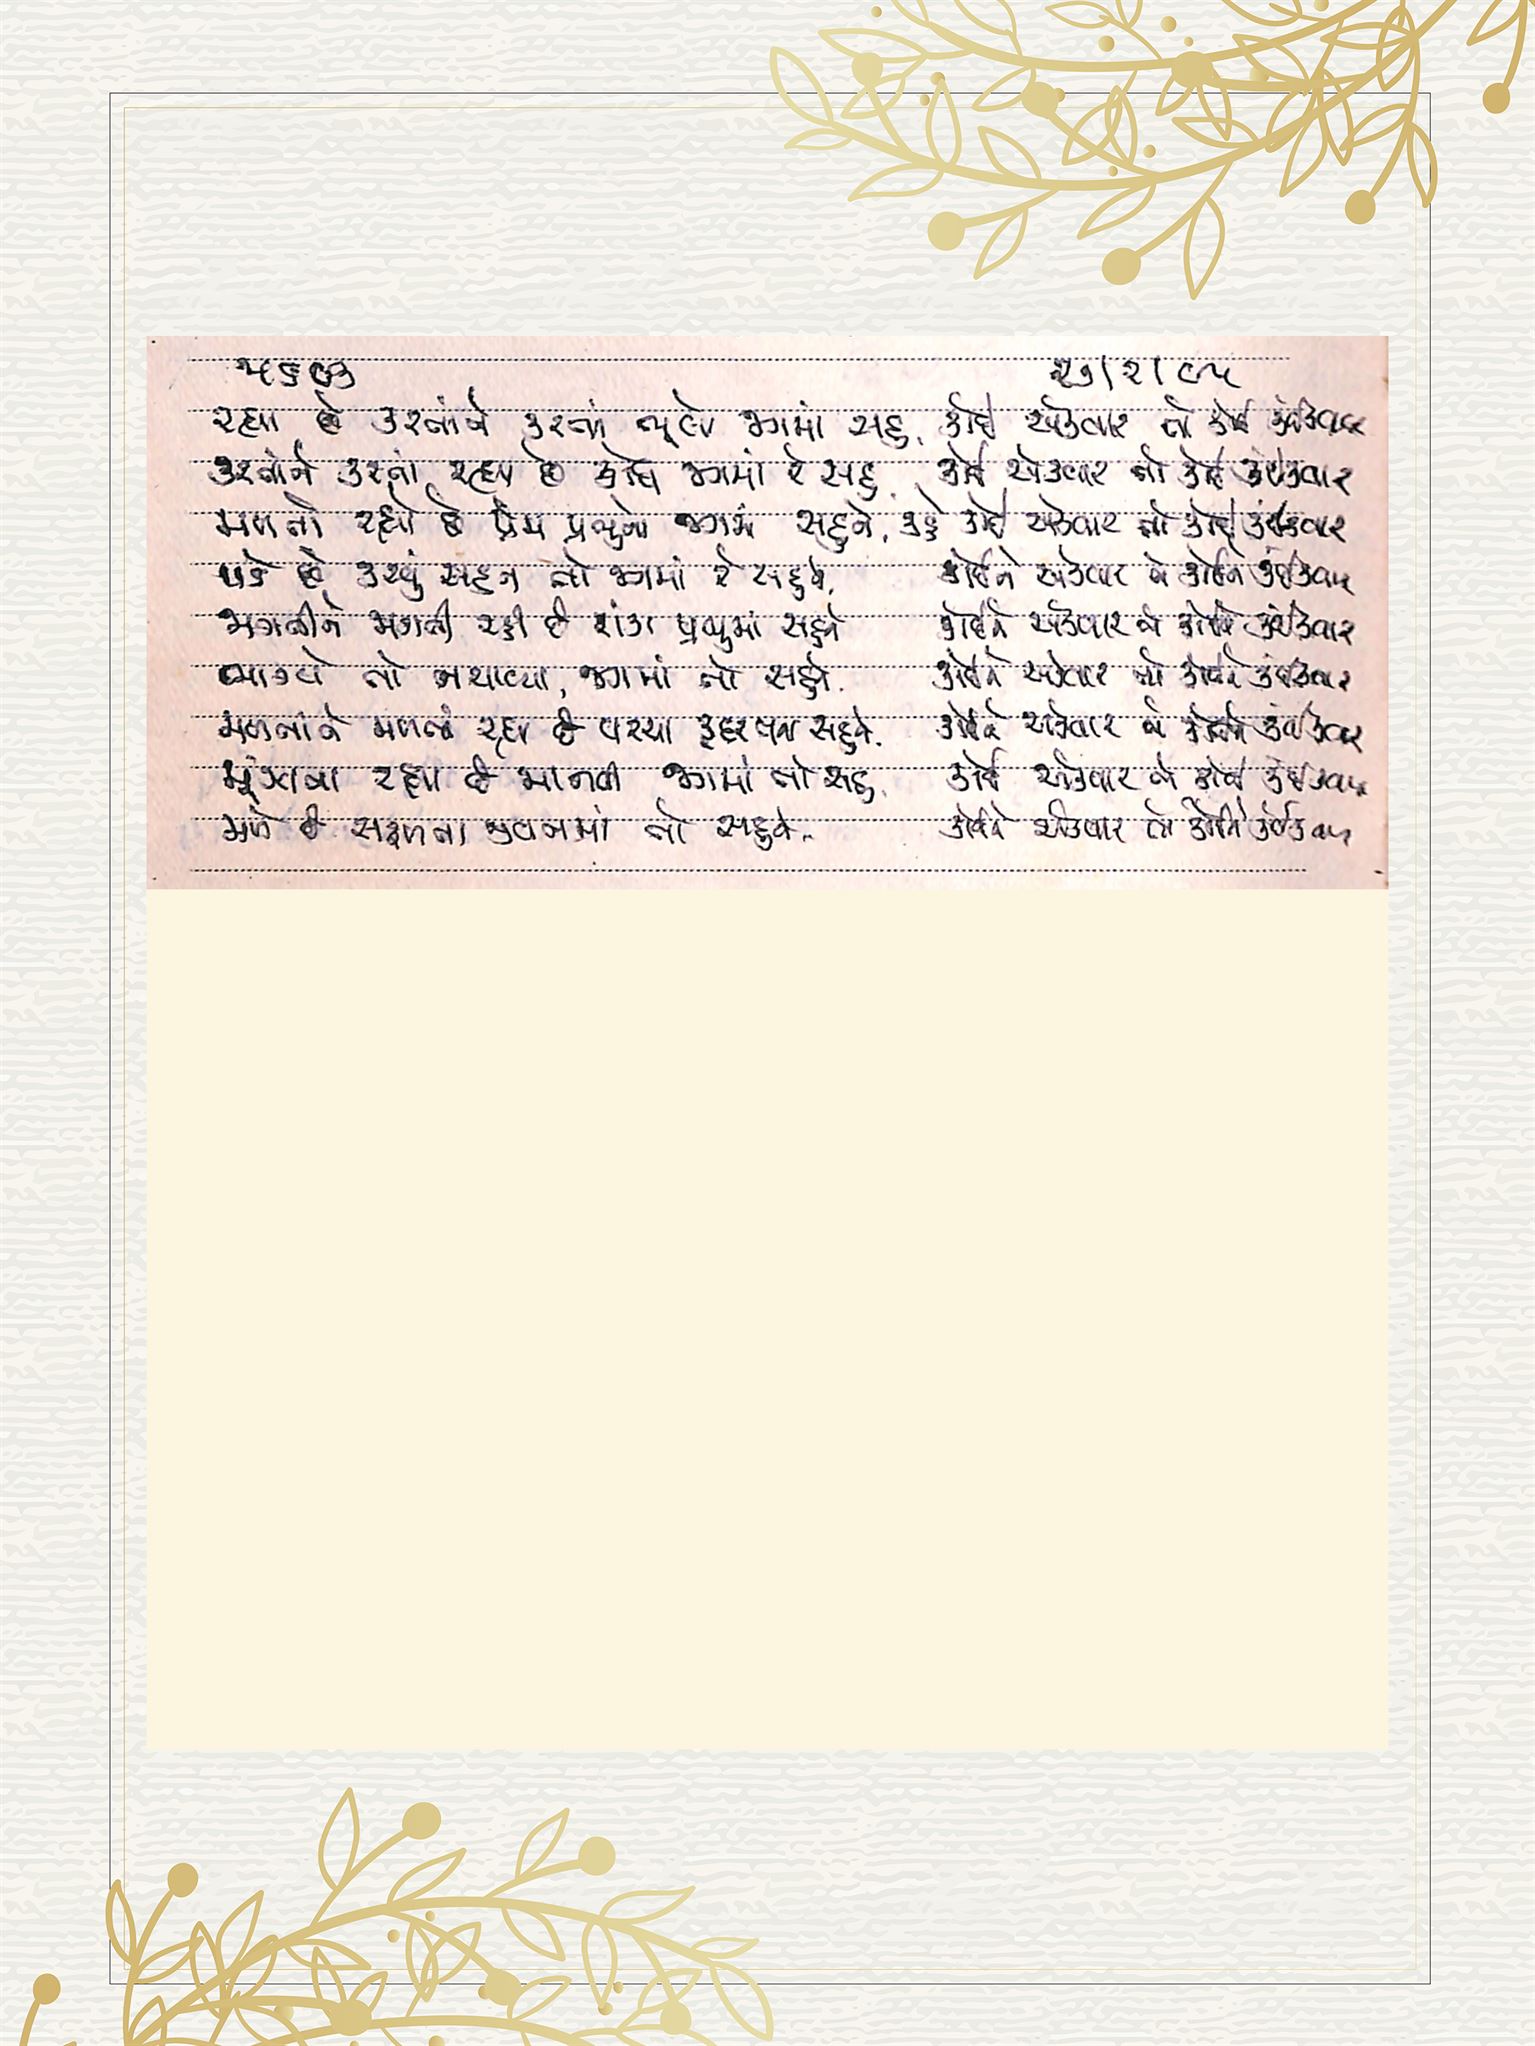 ૫૬૭૩ ૨૭/૨/૯૫
રહ્યા છે કરતાંને કરતાં ભૂલો જગમાં સહુ, કોઈ એકવાર તો કોઈ કંઈકવાર
કરતાંને કરતાં રહ્યા છે ક્રોધ જગમાં રે સહુ, કોઈ એકવાર તો કોઈ કંઈકવાર
મળતો રહ્યો છે પ્રેમ પ્રભુનો જગમાં સહુને, કોઈ એકવાર તો કોઈ કંઈકવાર
પડે છે કરવું સહન તો જગમાં રે સહુએ, કોઈને એકવાર તો કોઈને કંઈકવાર
જાગતીને જાગતી રહી છે શંકા પ્રભુમાં સહુને કોઈને એકવાર તો કોઈને કંઈકવાર
ભાગ્યે તો નચાવ્યા, જગમાં તો સહુને, કોઈને એકવાર તો કોઈને કંઈકવાર
મળતાંને મળતાં રહ્યા છે પરચા કુદરતના સહુને, કોઈને એકવાર તો કોઈને કંઈકવાર
મૂંઝાતા રહ્યા છે માનવી જગમાં તો સહુ, કોઈ એકવાર તો કોઈ કંઈકવાર
મળે છે સફળતા જીવનમાં તો સહુને, કોઈને એકવાર તો કોઈને કંઈકવાર